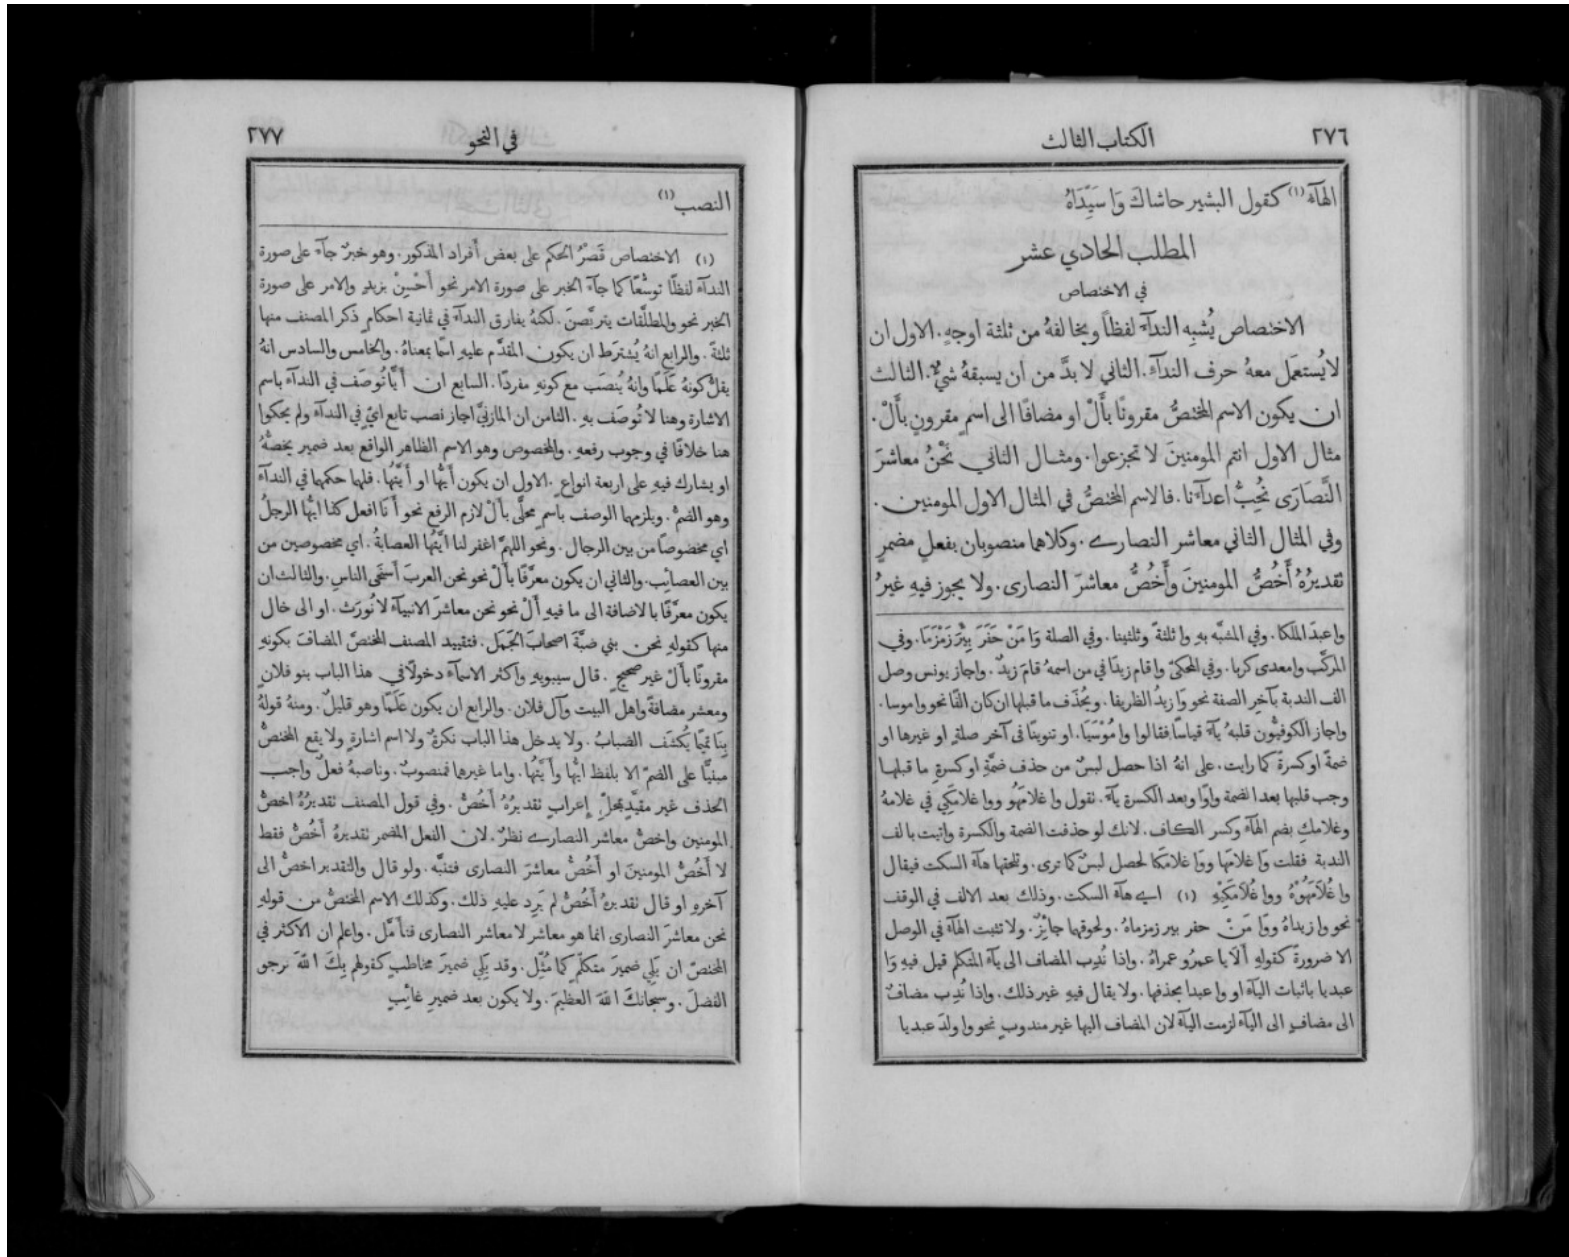 ٢٧٦
الكتاب الثالث
الهآء (١) كقول البشير حاشاك وَا سَيِّدَاهُ
المطلب الحادي عشر
في الاختصاص
الاختصاص يُشبِه الندآءَ لفظاً ويخالفهُ من ثلثة اوجهٍ. الاول ان
لا يُستعمَل معهُ حرف الندآء. الثاني لا بدَّ من ان يسبقهُ شيءٌ. الثالث
ان يكون الاسم المختصُّ مقرونًا بأَلْ او مضافًا الى اسمٍ مقرونٍ بأَلْ.
مثال الاول انتم المومنينَ لا تجزعوا. ومثال الثاني نَحْنُ معاشرَ
النَّصَارَى نُحِبُّ اعدآءَنا. فالاسم المختصُّ في المثال الاول المومنين.
وفي المثال الثاني معاشر النصارے. وكلاهما منصوبان بفعلٍ مضمرٍ
تقديرُهُ أَخُصُّ المومنينَ وأَخُصُّ معاشرَ النصارى. ولا يجوز فيهِ غيرُ
واعبدَ الملكا. وفي المشبَّه بهِ وا ثلثةً وثلثينا. وفي الصلة وَا مَنْ حَفَرَ بِيْرَ زَمْزَمَا. وفي
المركَّب وامعدى كربا. وفي المحكيّ وا قام زيدَا في من اسمهُ قامَ زيدٌ. واجاز يونس وصل
الف الندبة بآخِر الصفة نحو وَا زيدُ الظريفا. ويُحذَف ما قبلها ان كان الفًا نحو واموسا.
واجاز الكوفيُّون قلبهُ يآءً قياسًا فقالوا وا مُوْسَيَا. او تنوينًا في آخر صلةٍ او غيرها او
ضمةً او كسرةً كما رايت. على انهُ اذا حصل لبسٌ من حذف ضمَّةٍ او كسرةِ ما قبلها
وجب قلبها بعد الضمة واوًا وبعد الكسرة يآءً. تقول وا غلامَهُو ووا غلامَكِي في غلامهُ
وغلامكِ بضم الهآء وكسر الكاف. لانك لو حذفت الضمة والكسرة واتيت بالف
الندبة فقلت وَا غلامَها ووَا غلامَكا لحصل لبسٌ كما ترى. وتلحقها هآء السكت فيقال
وا غُلاَمَهُوْهْ ووا غُلاَمَكِيْهِ (١) اسے هآء السكت. وذلك بعد الالف في الوقف
نحو وا زيداهُ ووَا مَنْ حفر بير زمزماهُ. ولحوقها جائِزٌ. ولا تثبت الهآء في الوصل
الا ضرورةً كقولهِ أَلاَ يا عمرُو عمراهُ. واذا نُدِب المضاف الى يآء المتكلم قيل فيهِ وَا
عبديا باثبات اليآء او وا عبدا بحذفها. ولا يقال فيهِ غير ذلك. واذا نُدِب مضافٌ
الى مضافٍ الى اليآء لزمت اليآء لان المضاف اليها غير مندوبٍ نحو وا ولدَ عبديا
في النحو
٢٧٧
النصب (١)
(١) الاختصاص قَصْرُ الحكم على بعض أفراد المذكور. وهو خبرٌ جآء على صورة
الندآء لفظًا توسُّعًا كما جآء الخبر على صورة الامر نحو أَحْسِنْ بزيدٍ والامر على صورة
الخبر نحو والمطلَّقات يتربَّصنَ. لكنهُ يفارق الندآء في ثمانية احكامٍ ذكر المصنف منها
ثلثةً. والرابع انهُ يُشترَط ان يكون المقدَّم عليهِ اسمًا بمعناهُ. والخامس والسادس انهُ
يقلُّ كونهُ عَلَمًا وانهُ يُنصَب مع كونهِ مفردًا. السابع ان أَيًّا تُوصَف في الندآء باسم
الاشارة وهنا لا تُوصَف بهِ. الثامن ان المازنيَّ اجاز نصب تابع ايٍّ في الندآء ولم يحكوا
هنا خلافًا في وجوب رفعهِ. والمخصوص وهو الاسم الظاهر الواقع بعد ضمير يخصُّهُ
او يشارك فيهِ على اربعة انواعٍ. الاول ان يكون أَيُّها او أَيَّتُها. فلها حكمها في الندآء
وهو الضمُّ. ويلزمها الوصف باسمٍ محلَّى بأَلْ لازم الرفع نحو أَنَا افعل كذا ايُّها الرجلُ
اي مخصوصًا من بين الرجال. ونحو اللهمَّ اغفر لنا ايَّتُها العصابةُ. اي مخصوصين من
بين العصائِب. والثاني ان يكون معرَّفًا بأَلْ نحو نحن العربَ أَسخَى الناسِ. والثالث ان
يكون معرَّفًا بالاضافة الى ما فيهِ أَلْ نحو نحن معاشرَ الانبيآء لا نُورَث. او الى خال
منها كقولهِ نحن بني ضبَّةَ اصحابُ الجَمَل. فتقييد المصنف المختصَّ المضافَ بكونهِ
مقرونًا بأَلْ غير صحيحٍ. قال سيبويهِ واكثر الاسمآء دخولًا في هذا الباب بنو فلانٍ
ومعشر مضافةً واهل البيت وآل فلان. والرابع ان يكون عَلَمًا وهو قليلٌ. ومنهُ قولهُ
بِنَا تميمًا يُكشَف الضبابُ. ولا يدخل هذا الباب نكرةٌ ولا اسم اشارةٍ ولا يقع المختصُّ
مبنيًّا على الضمّ الا بلفظ ايُّها وأَيَّتُها. واما غيرها فمنصوبٌ. وناصبهُ فعلٌ واجب
الحذف غير مقيَّدٍ بمحلِّ إِعرابٍ تقديرُهُ أَخُصُّ. وفي قول المصنف تقديرُهُ اخصُّ
المومنين واخصُّ معاشر النصارے نظرٌ. لان الفعل المضمر تقديرهُ أَخُصُّ فقط
لا أَخُصُّ المومنينَ او أَخُصُّ معاشرَ النصارى فتنبَّه. ولو قال والتقدير اخصُّ الى
آخرهِ او قال تقديرهُ أَخُصُّ لم يَرِد عليهِ ذلك. وكذلك الاسم المختصُّ من قولهِ
نحن معاشرَ النصارى انما هو معاشر لا معاشر النصارى فتأَمَّل. واعلم ان الاكثر في
المختصّ ان يَلِي ضميرَ متكلِّمٍ كما مُثِّل. وقد يَلِي ضميرَ مخاطبٍ كقولهم بِكَ اللّٰهَ نرجو
الفضلَ. وسبحانكَ اللّٰهَ العظيمَ. ولا يكون بعد ضميرِ غائِبٍ